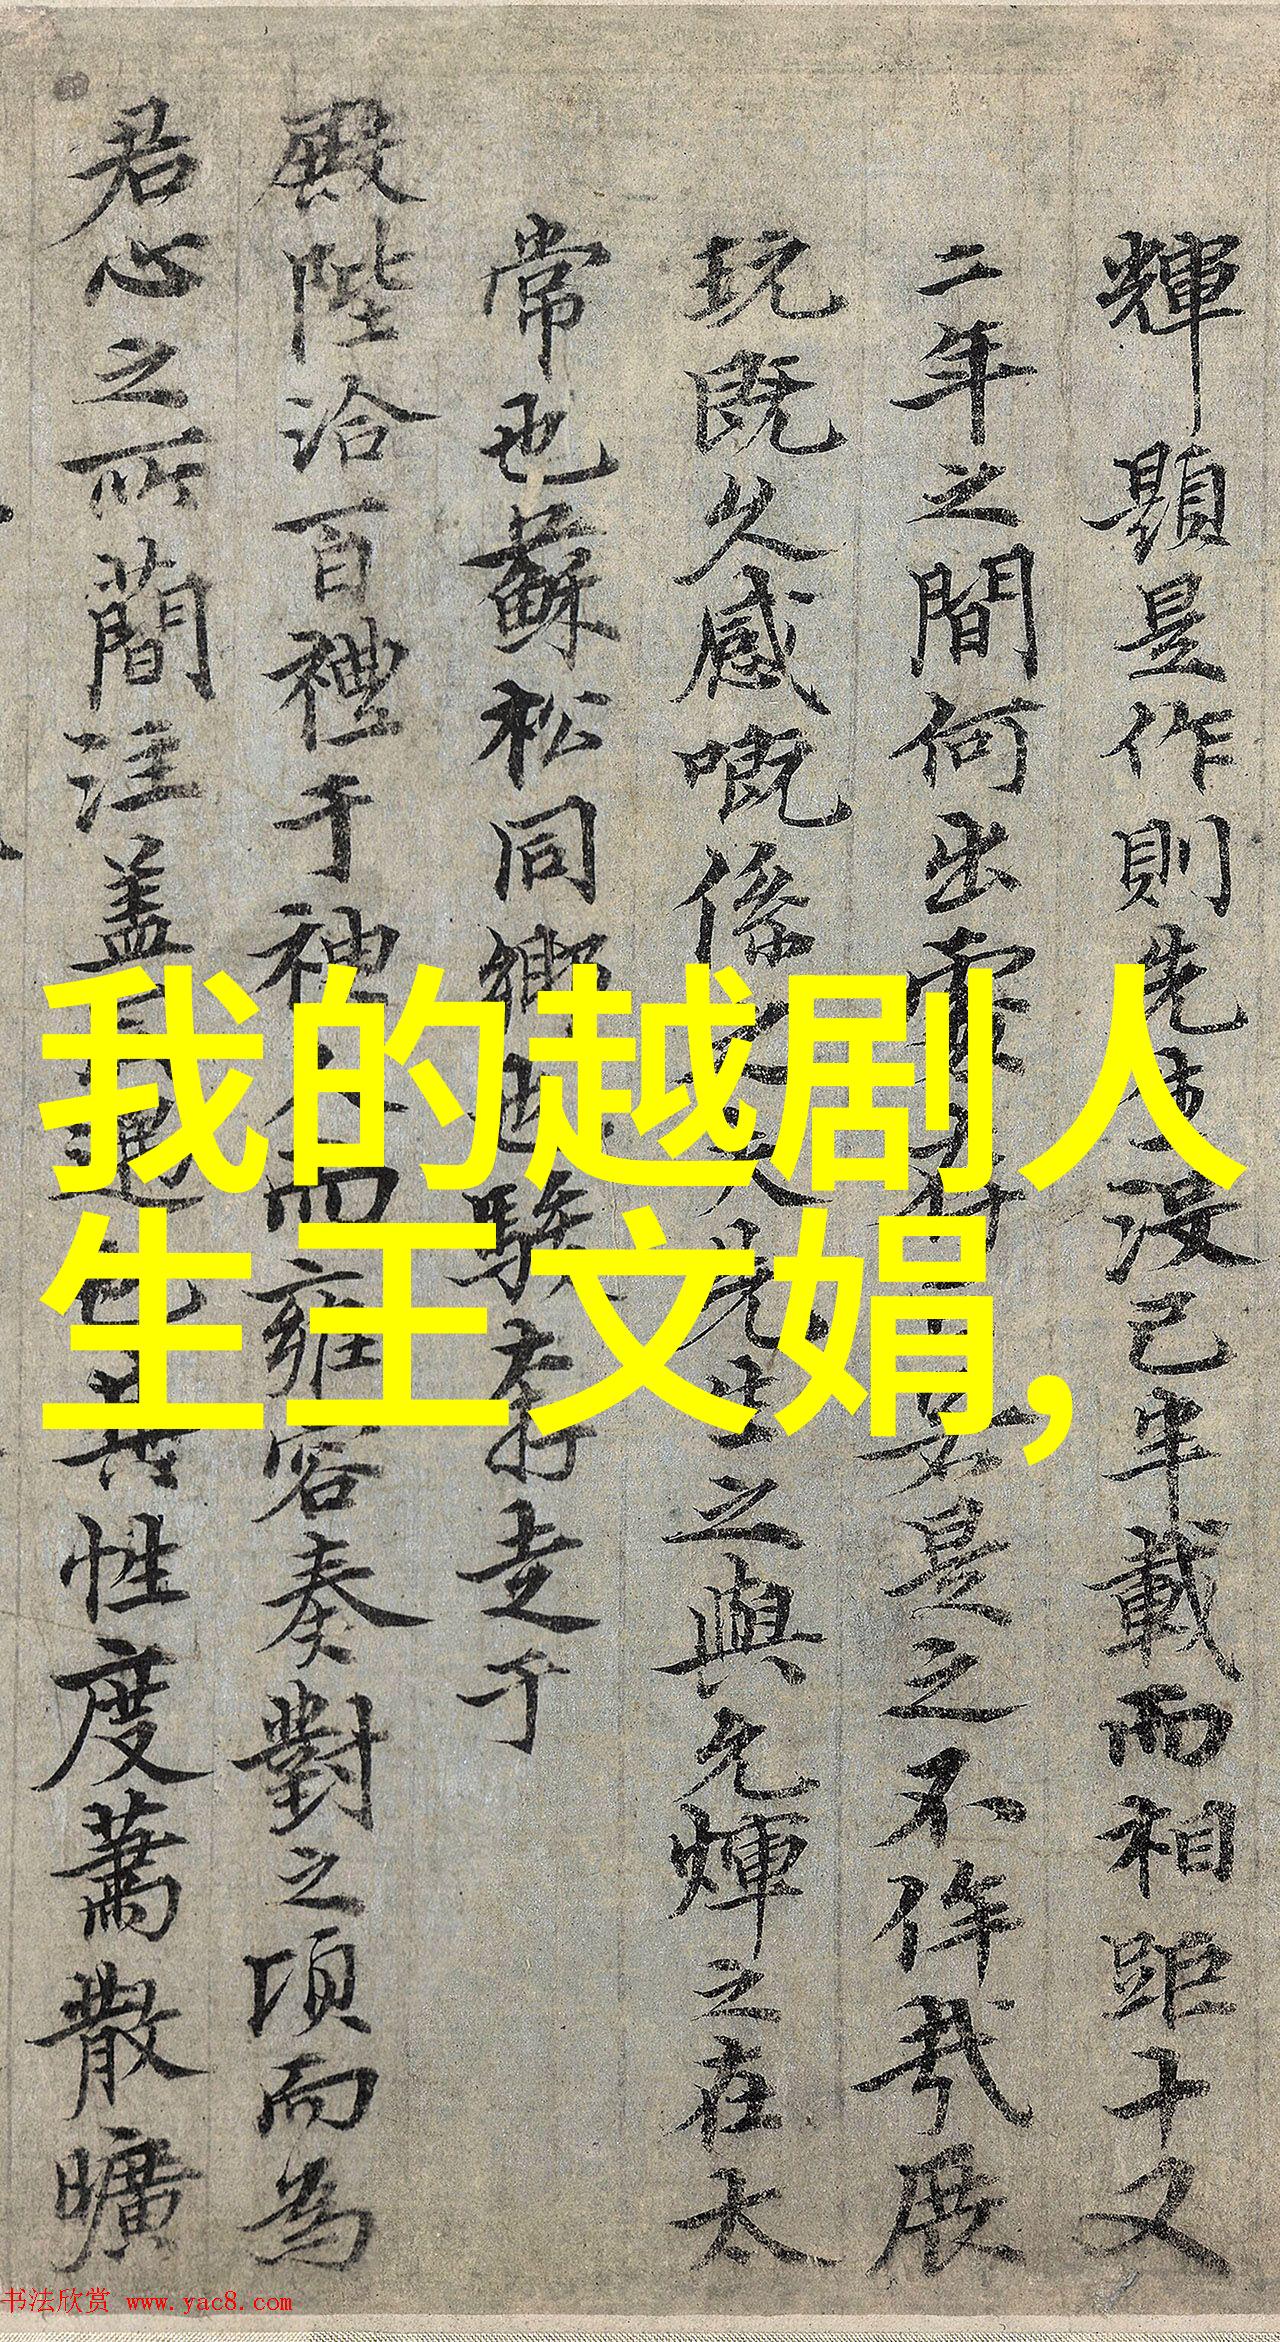 我的越剧人
生王文娟,
輝題是作則先生沒已半載而相距十又
二年之間何出若是之不侔哉展
玩既久感嘅係之夫先生之與允輝之在太
常也蘇松同鄉也駿奔走于
殿陛洽百禮于神人而雍容奏對之頃而為
君心之所簡注蓋其性度蕭散曠
书法欣赏 www.yac8.com